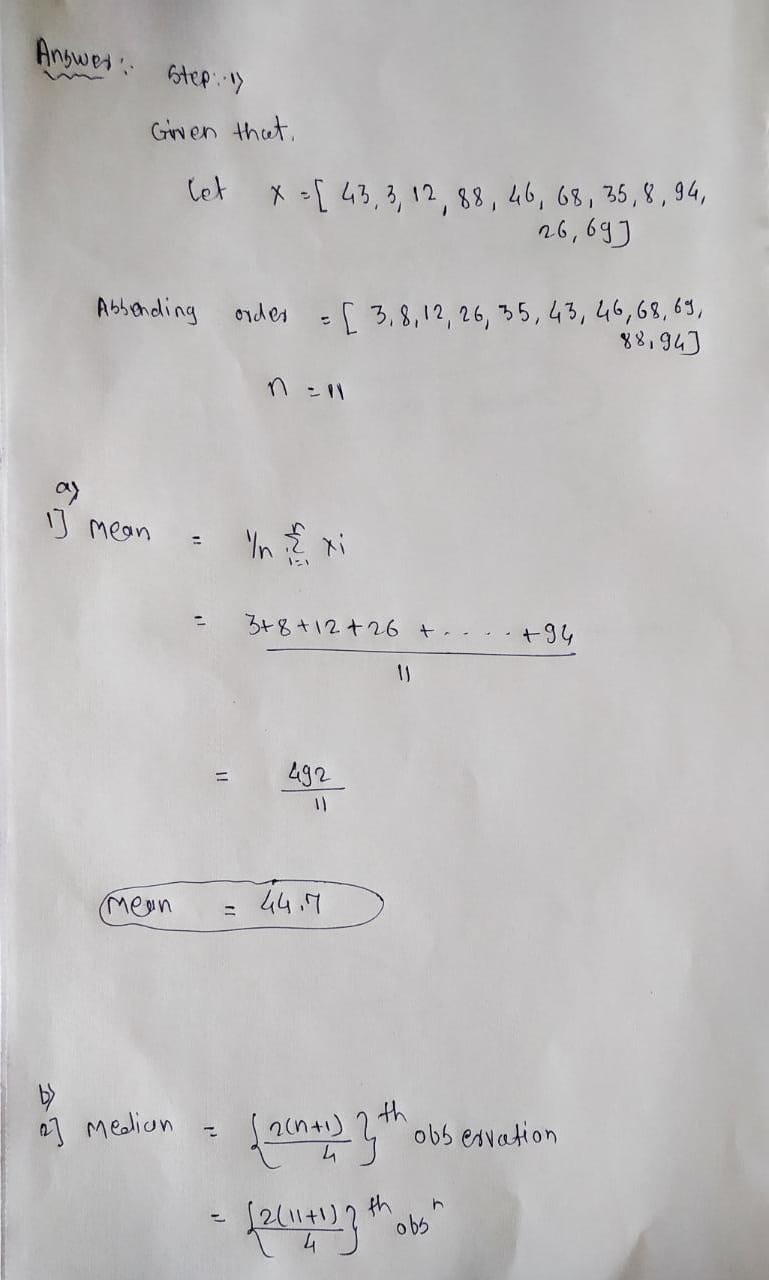 Answer :-
Step :- 1)
Given that,
Let x = [ 43, 3, 12, 88, 46, 68, 35, 8, 94,
26, 69]
Assending order = [ 3, 8, 12, 26, 35, 43, 46, 68, 69,
88, 94]
n = 11
a)
1] Mean = 1/n Σ_{i=1}^{n} xi
= 3+8+12+26 + ..... +94
11
= 492
11
Mean = 44.7
b)
2] Median = {2(n+1)/4}th observation
= {2(11+1)/4}th obsⁿ